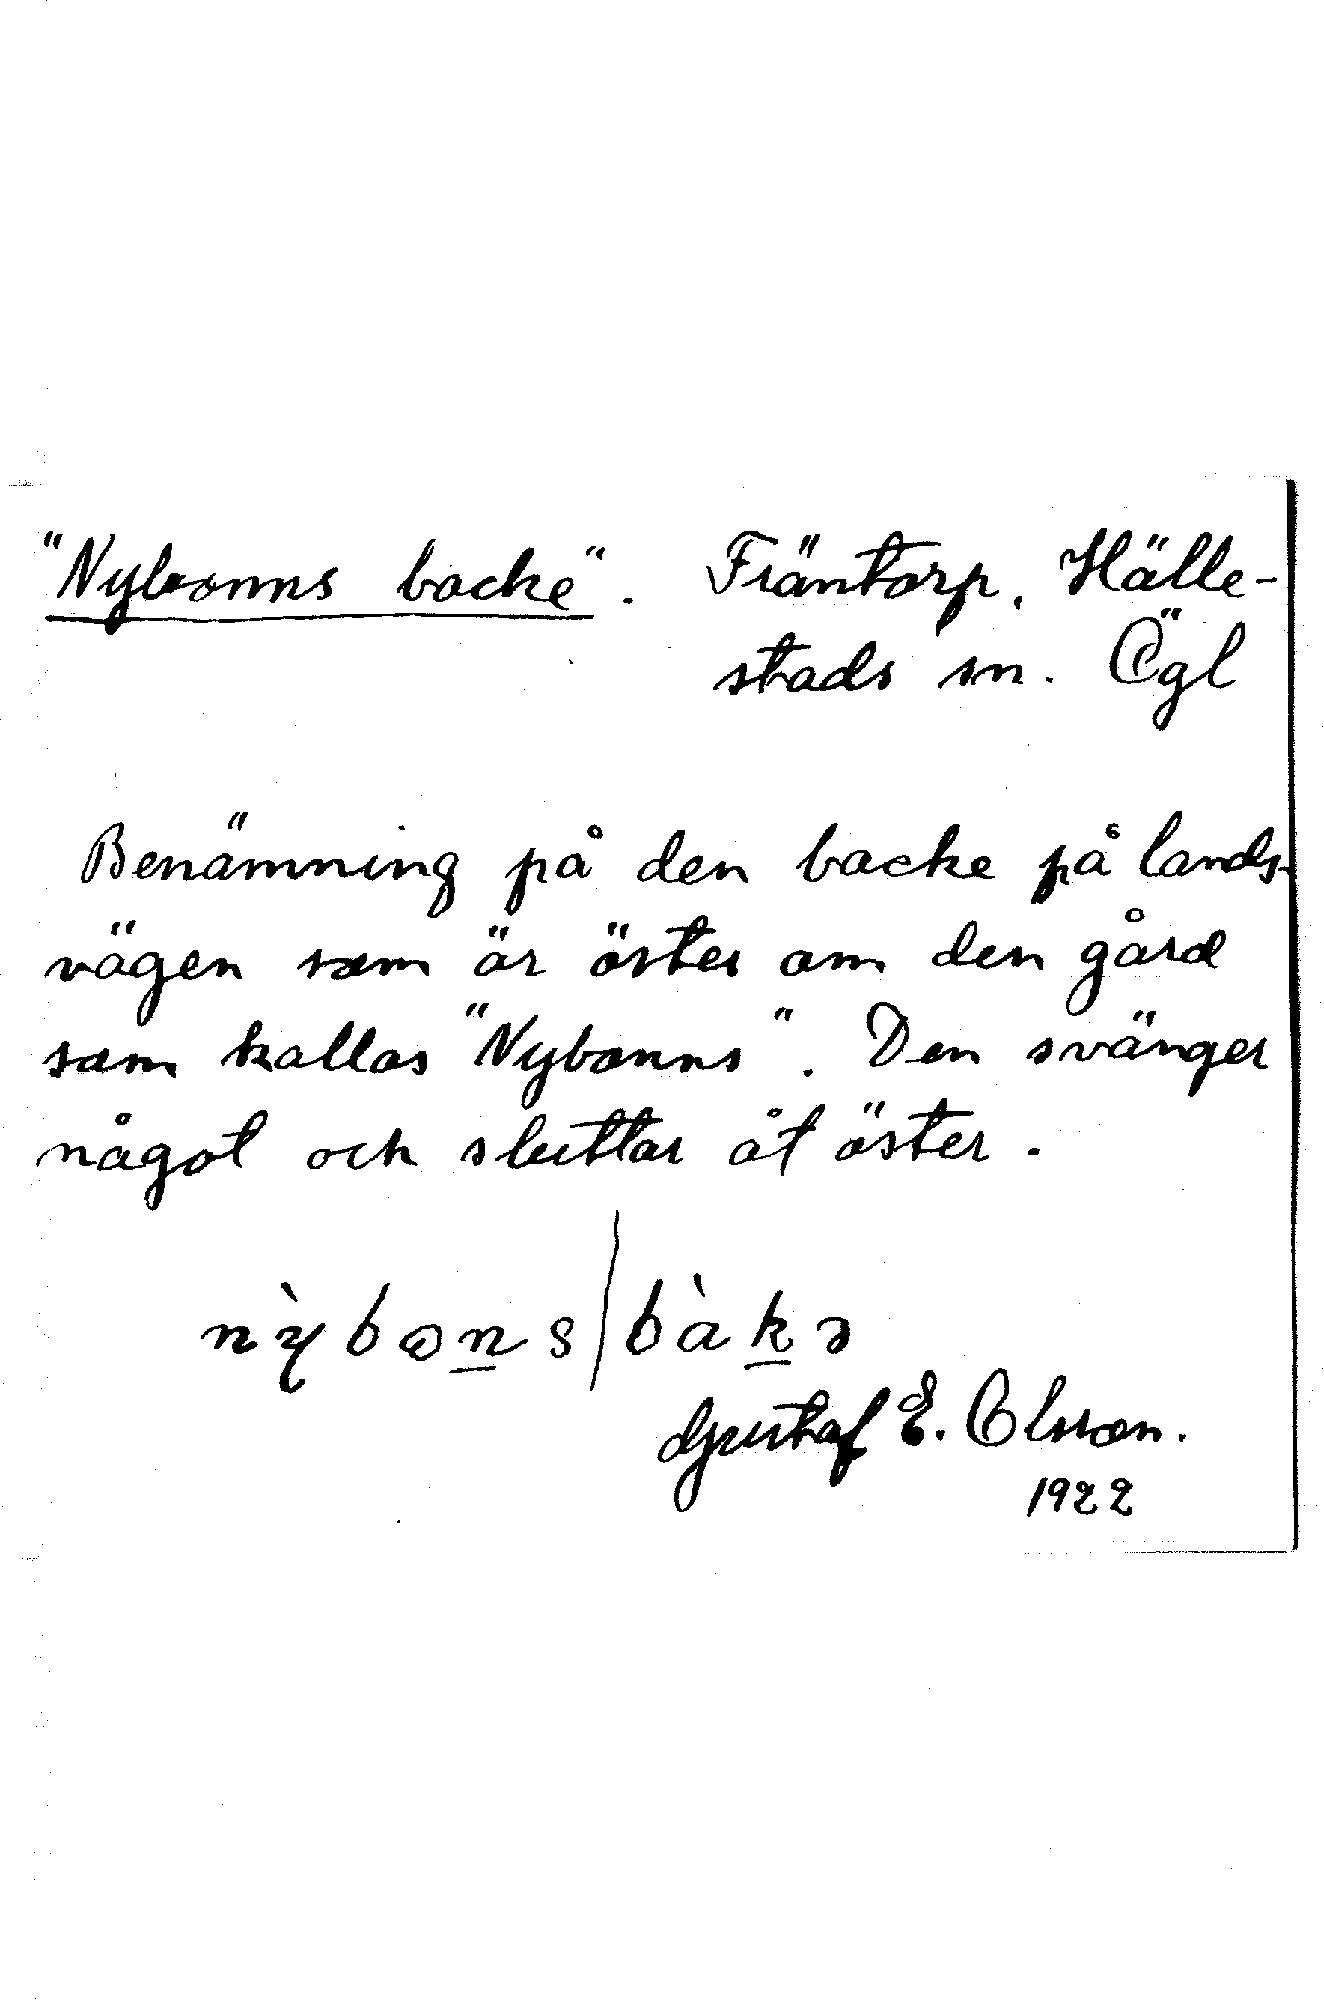 "Nybonns backe". Fräntorp, Hälle-
stads sn. Ögl
Benämning på den backe på lands-
vägen som är öster om den gård
som kallas "Nybonns". Den svänger
något och sluttar åt öster.
Gustaf E. Olsson.
1922